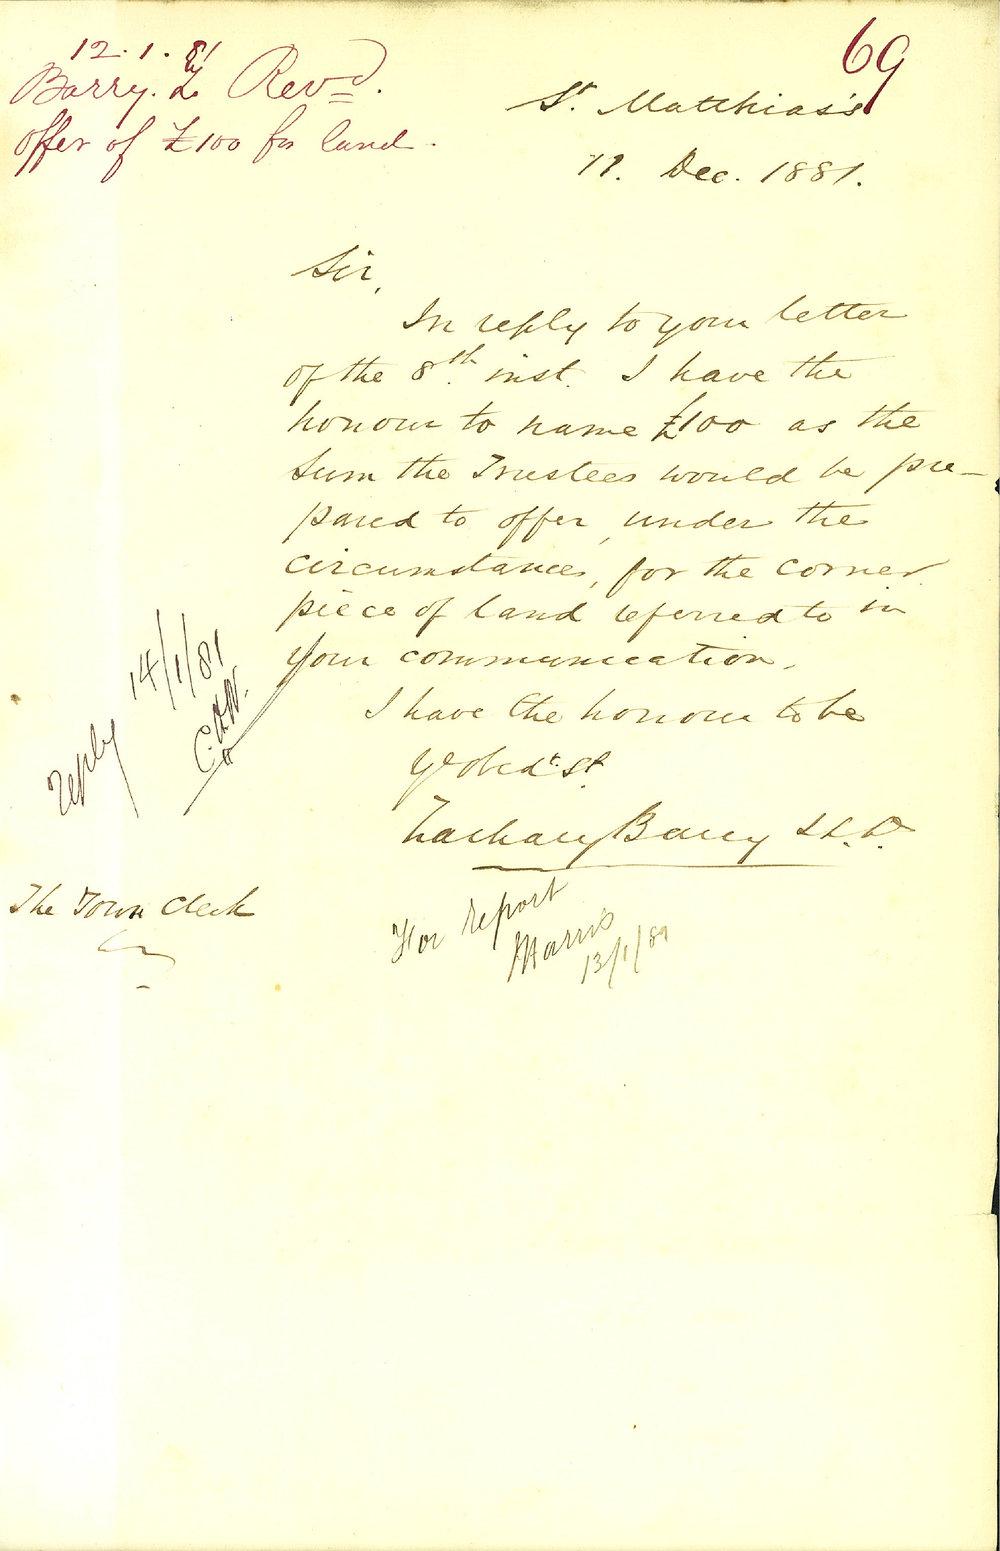 12.1.81
Barry. Z Revd.
offer of £100 for land.
69
St. Matthias's
11. Dec. 1881.
Sir,
In reply to your letter
of the 8th. inst. I have the
honour to name £100 as the
sum the Trustees would be pre-
pared to offer, under the
circumstances, for the corner
piece of land referred to in
your communication.
I have the honour to be
Yr obedt. st.
Zachary Barry LL.D.
The Town Clerk
reply 14/1/81
For report
13/1/81